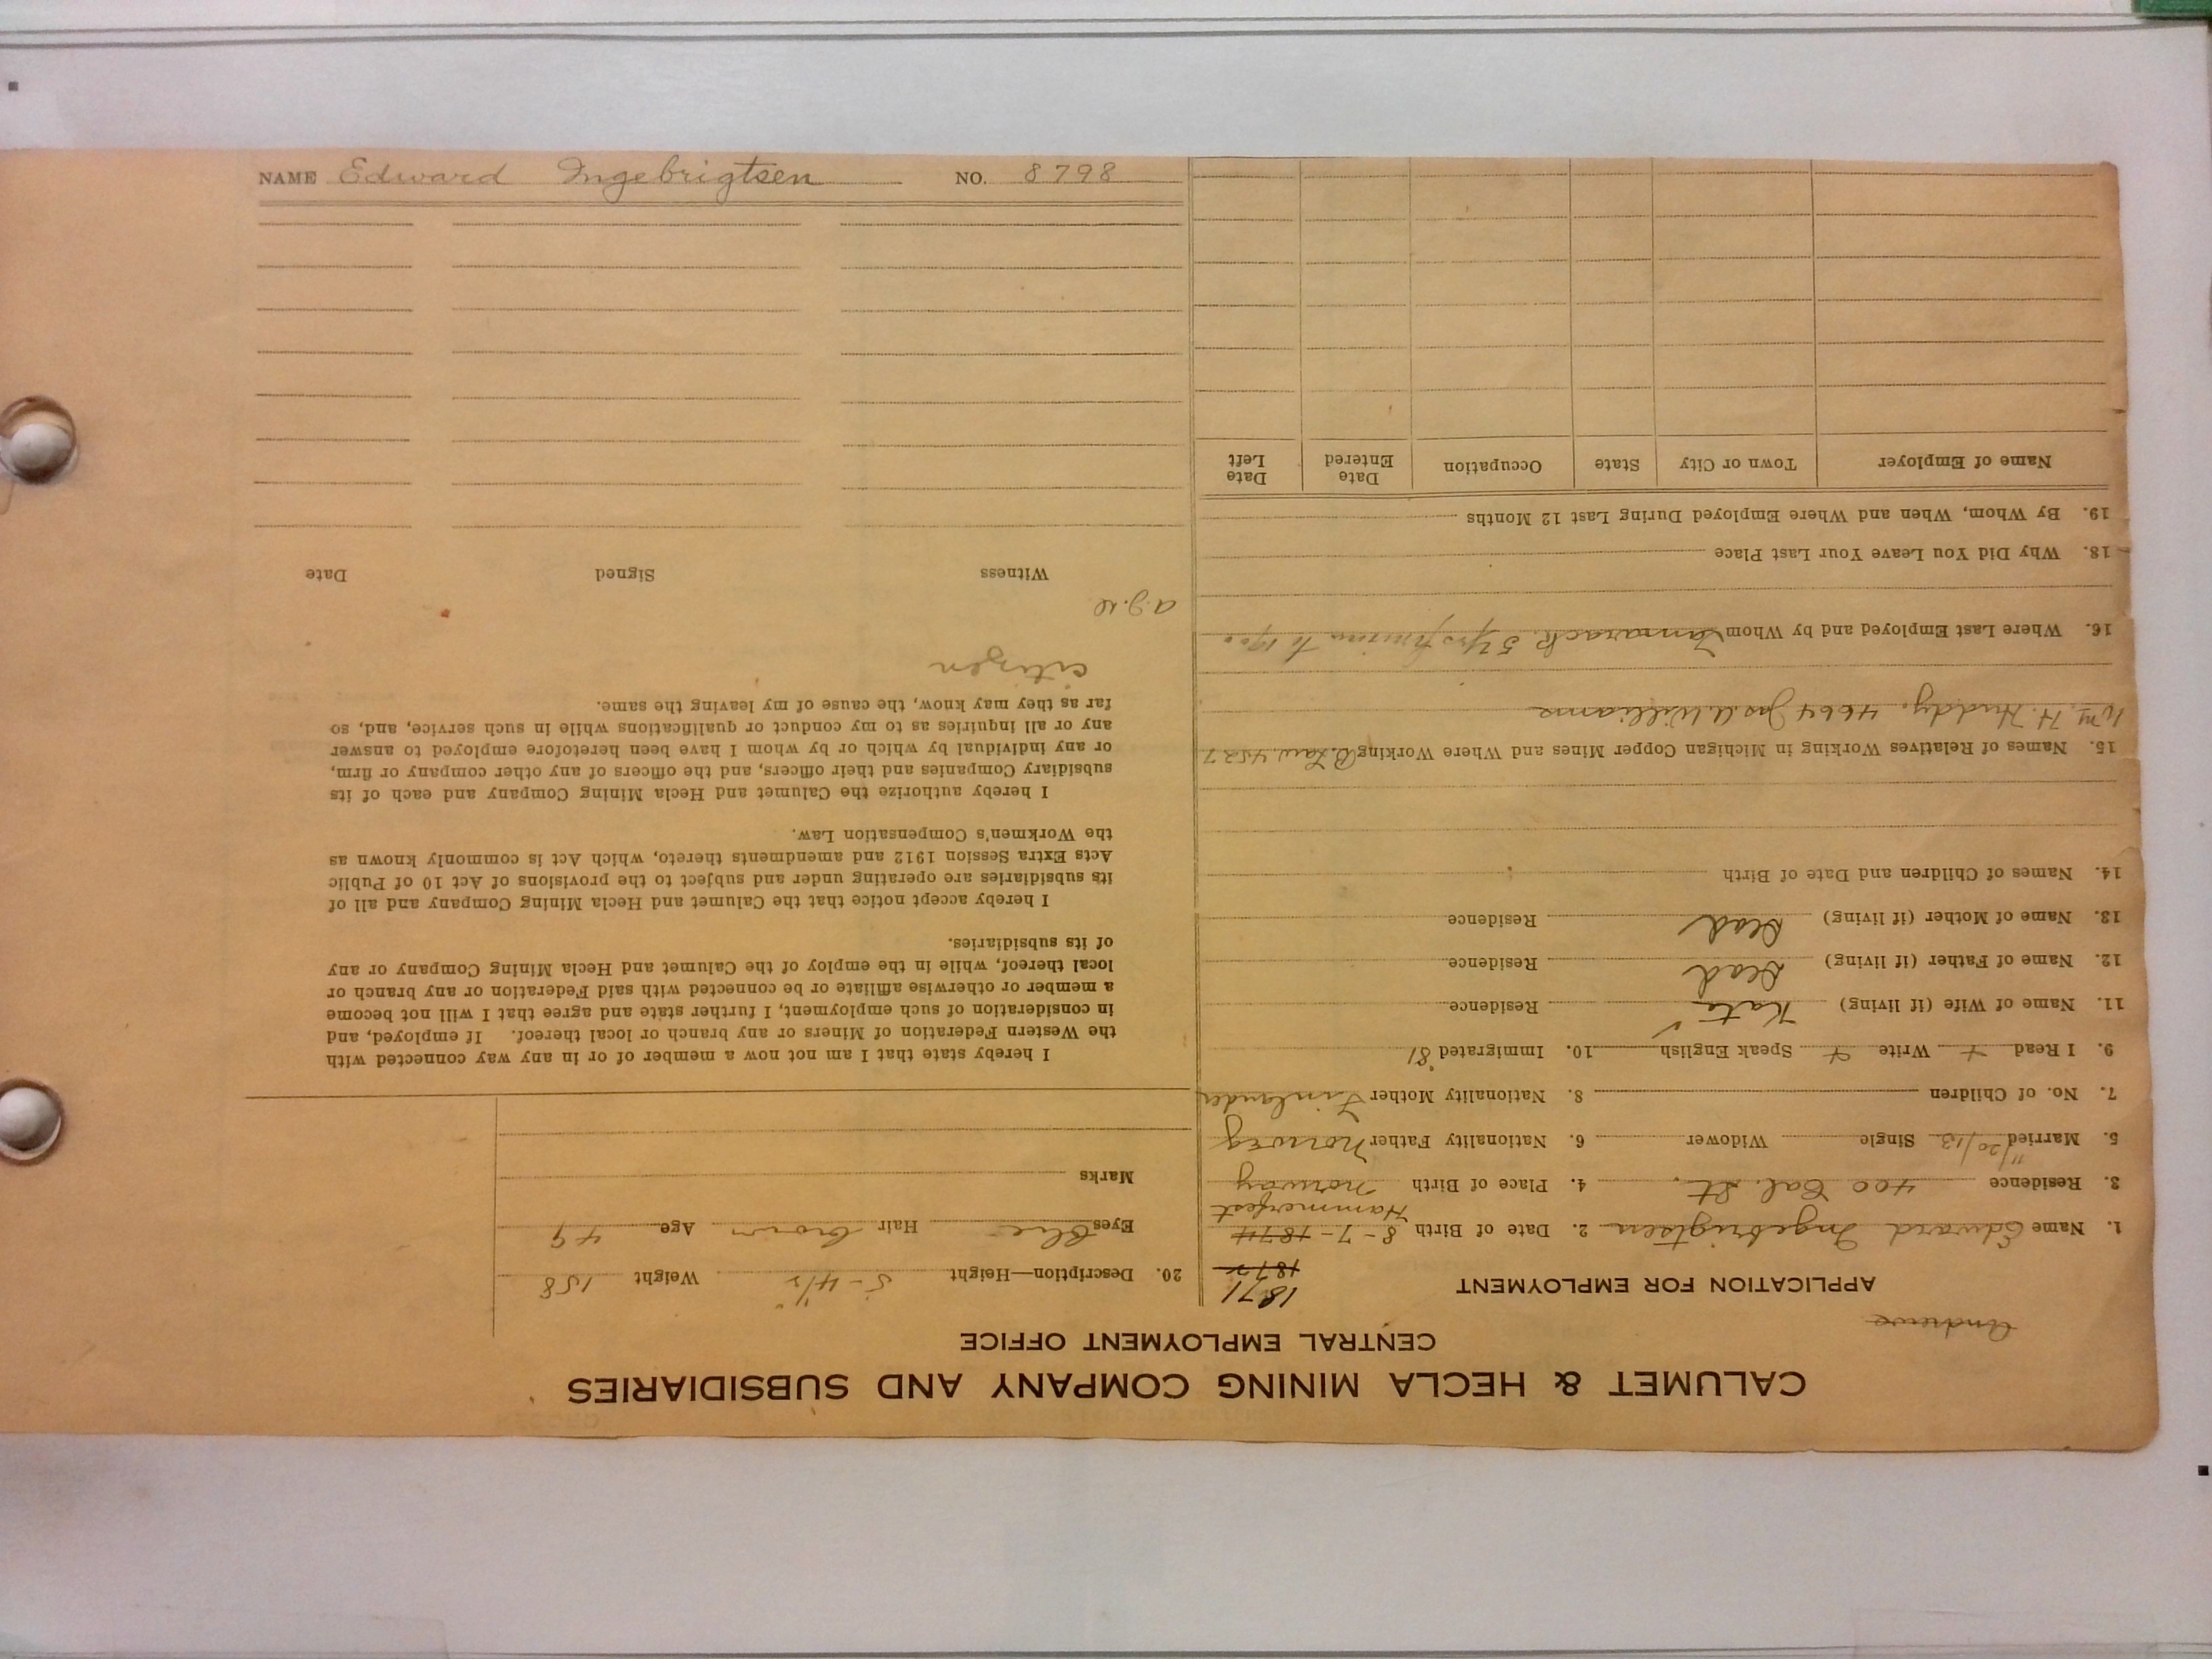 CALUMET & HECLA MINING COMPANY AND SUBSIDIARIES
CENTRAL EMPLOYMENT OFFICE
Andrew
APPLICATION FOR EMPLOYMENT
1871
1872
1. Name Edward Ingebrigtsen 2. Date of Birth 8-7-1874
Hammerfest
3. Residence 400 Cal. St. 4. Place of Birth Norway
5. Married 11/20/13 Single Widower 6. Nationality Father Norweg
7. No. of Children 8. Nationality Mother Finlander
9. I Read + Write + Speak English 10. Immigrated '81
11. Name of Wife (if living) Kate Residence
12. Name of Father (if living) Dead Residence
13. Name of Mother (if living) Dead Residence
14. Names of Children and Date of Birth
15. Names of Relatives Working in Michigan Copper Mines and Where Working B. Law 4527
Wm. H. Huddy. 4664 Jas. A. Williams
16. Where Last Employed and by Whom Tamarack 5 yrs to 1900
18. Why Did You Leave Your Last Place
19. By Whom, When and Where Employed During Last 12 Months
Name of Employer Town or City State Occupation Date Entered Date Left
20. Description—Height 5-4½" Weight 158
Eyes Blue Hair brown Age 49
Marks
I hereby state that I am not now a member of or in any way connected with
the Western Federation of Miners or any branch or local thereof. If employed, and
in consideration of such employment, I further state and agree that I will not become
a member or otherwise affiliate or be connected with said Federation or any branch or
local thereof, while in the employ of the Calumet and Hecla Mining Company or any
of its subsidiaries.
I hereby accept notice that the Calumet and Hecla Mining Company and all of
its subsidiaries are operating under and subject to the provisions of Act 10 of Public
Acts Extra Session 1912 and amendments thereto, which Act is commonly known as
the Workmen's Compensation Law.
I hereby authorize the Calumet and Hecla Mining Company and each of its
subsidiary Companies and their officers, and the officers of any other company or firm,
or any individual by which or by whom I have been heretofore employed to answer
any or all inquiries as to my conduct or qualifications while in such service, and, so
far as they may know, the cause of my leaving the same.
citizen
Witness Signed Date
NAME Edward Ingebrigtsen NO. 8798